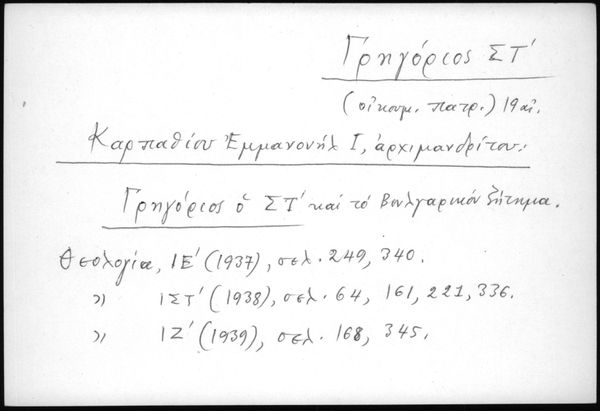 Γρηγόριος ΣΤ'
(οἰκουμ. πατρ.) 19 αἰ.
Καρπαθίου Ἐμμανουήλ Ι, ἀρχιμανδρίτου:
Γρηγόριος ὁ ΣΤ' καί τό Βουλγαρικόν ζήτημα.
Θεολογία, ΙΕ' (1937), σελ. 249, 340.
» ΙΣΤ' (1938), σελ. 64, 161, 221, 336.
» ΙΖ' (1939), σελ. 168, 345.